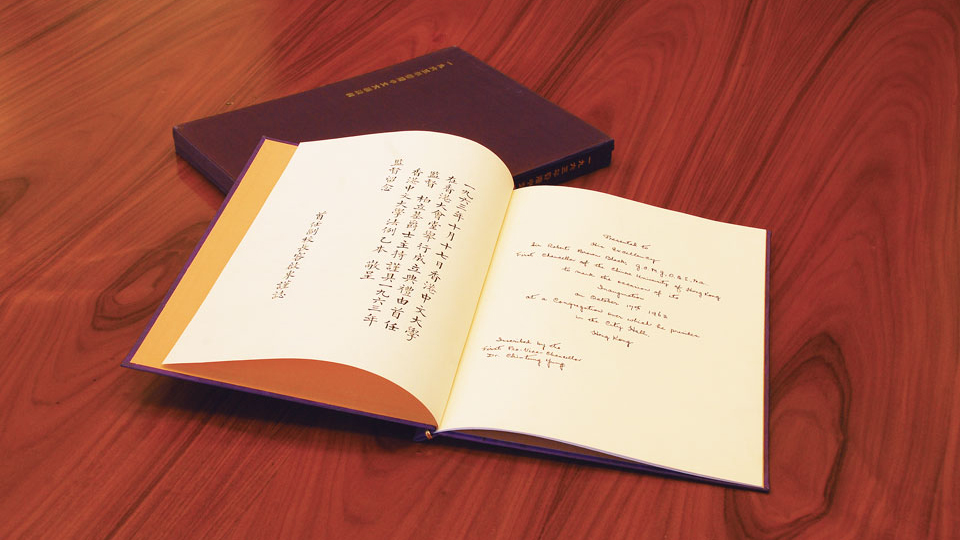 一九六三年十月十七日香港中文大學
在香港大會堂舉行成立典禮由首任
監督 柏立基爵士主持謹具一九六三年
香港中文大學法例乙本 敬呈
監督留念
首任副校長容啟東謹誌
Presented to
His Excellency
Sir Robert Brown Black, G.C.M.G., O.B.E., M.A.
First Chancellor of the Chinese University of Hong Kong
to mark the occasion of its
Inauguration
on October 17th 1963
at a Congregation over which he presided
in the City Hall,
Hong Kong
Inscribed by the
First Pro-Vice-Chancellor
Dr. Chi-tung Yung
一九六三年香港中文